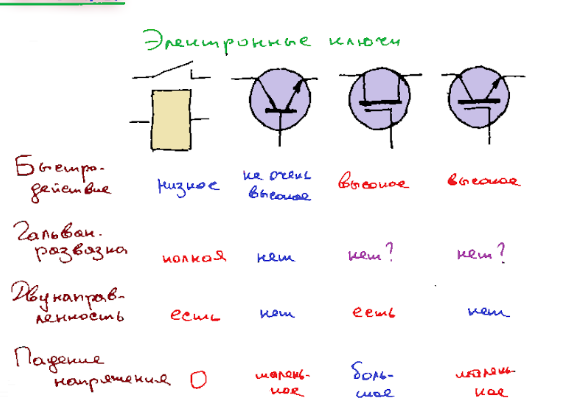 Электронные ключи
Быстро-
действие низкое не очень высокое высокое высокое
Гальван.
развязка полная нет нет? нет?
Двунаправ-
ленность есть нет есть нет
Падение
напряжения 0 малень-
кое боль-
шое малень-
кое